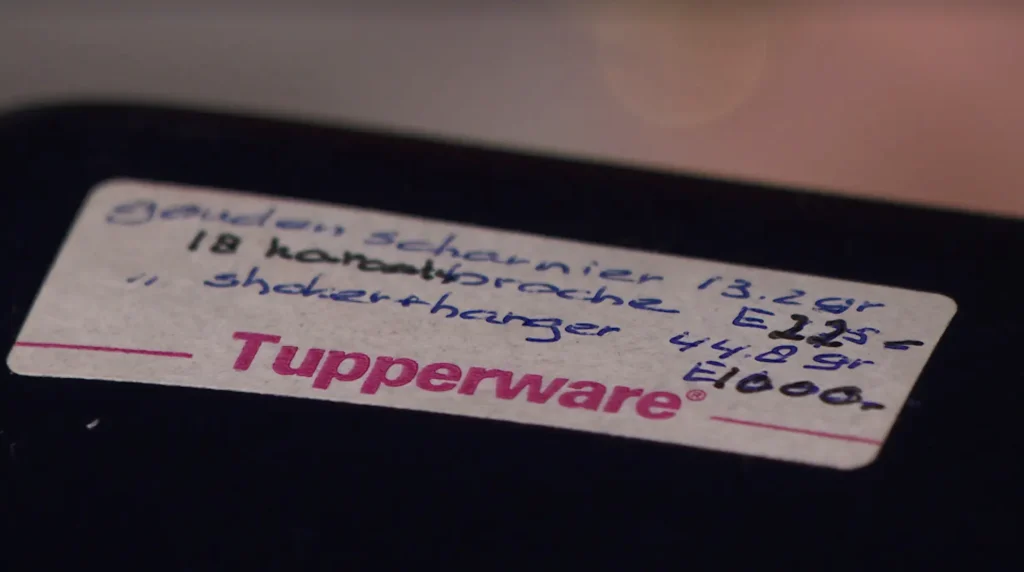 gouden scharnier 13.2 gr
18 karaat broche E 225 -
" shaker + hanger 44.8 gr
E 1000.-
Tupperware®